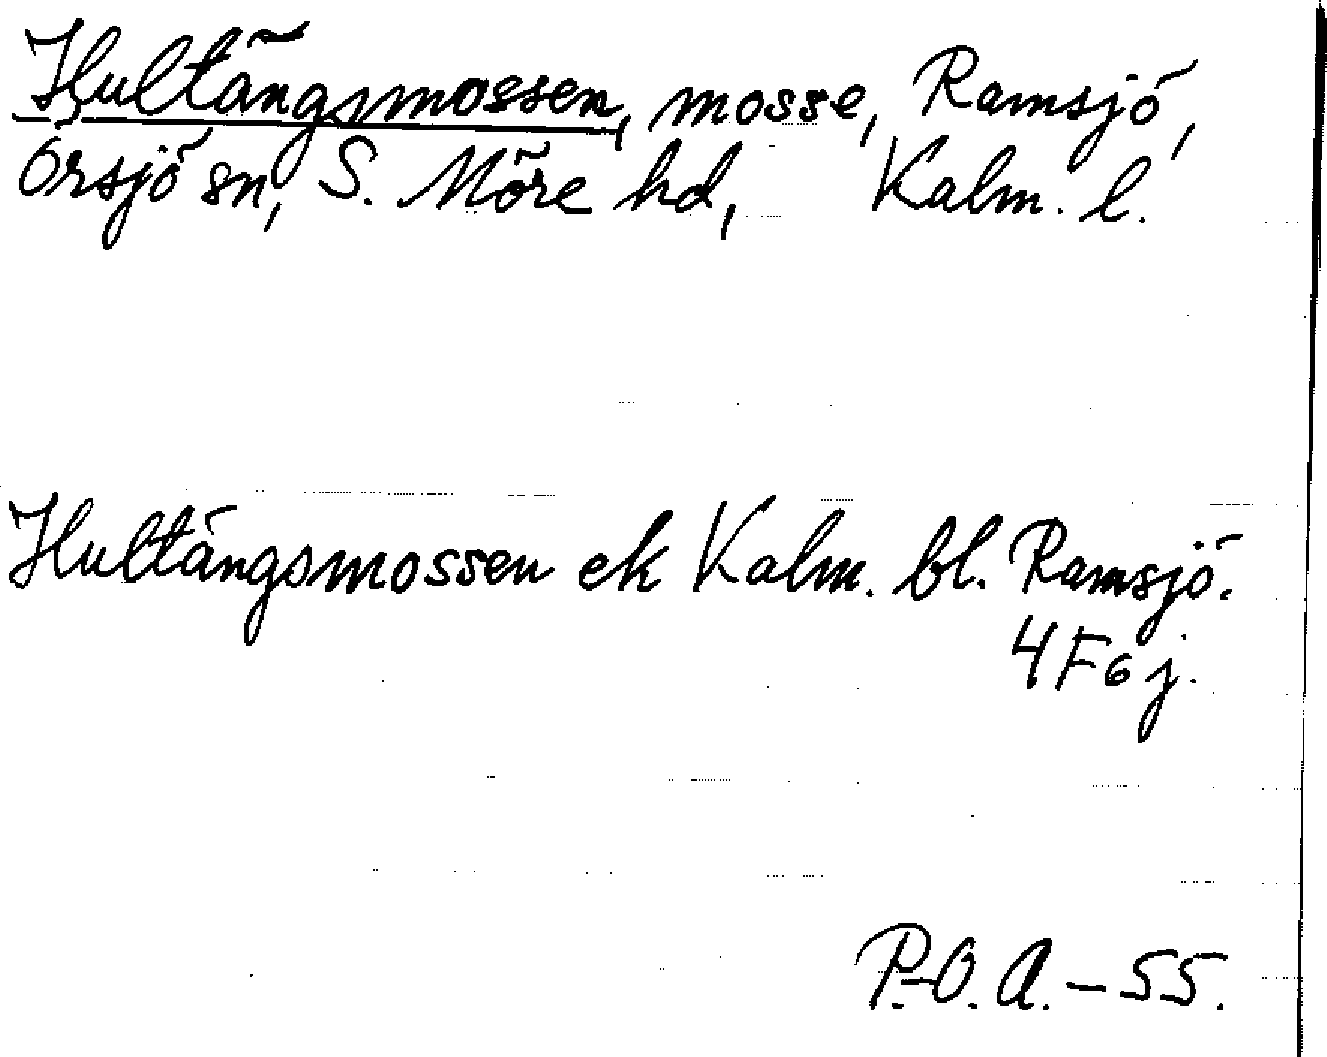 Hultängsmossen, mosse, Ramsjö,
Örsjö sn, S. Möre hd, Kalm. l.
Hultängsmossen ek Kalm. bl. Ramsjö.
4F6j.
P.-O. A. – 55.